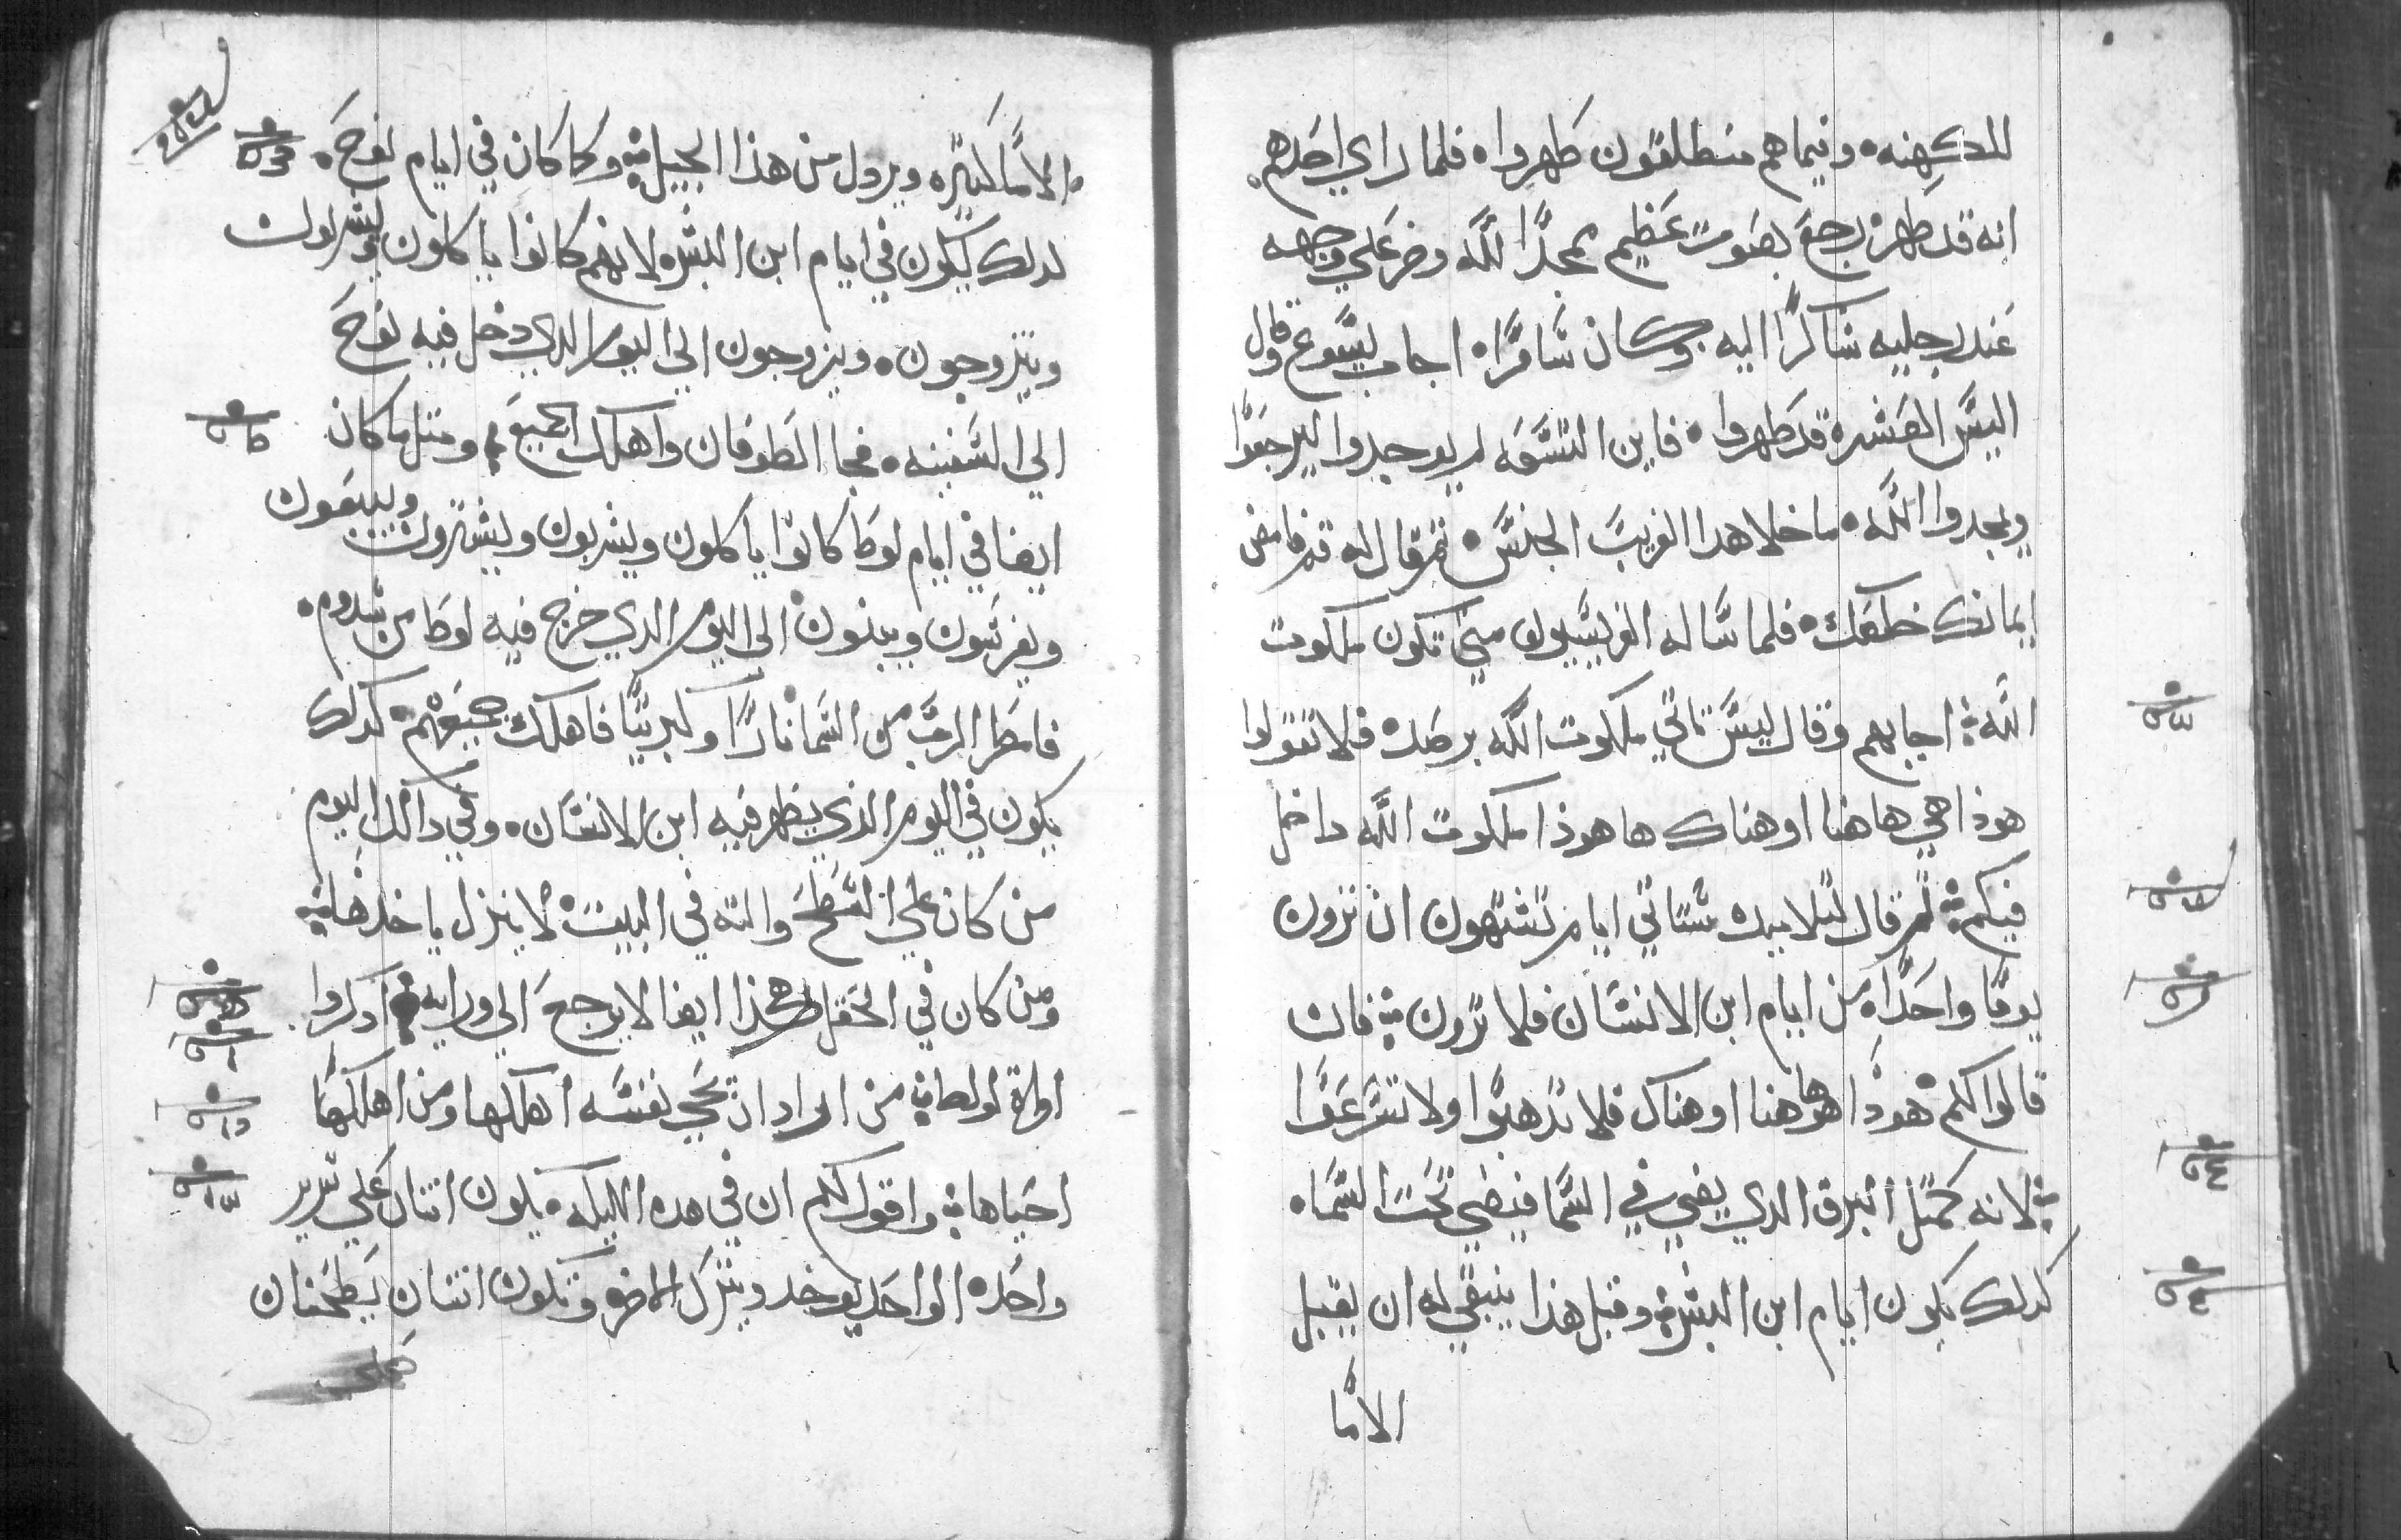 للكهنه ٥ وفيماهم منطلقون طهروا ٥ فلما راي احدهم
انه قد طهر رجع بصوت عظيم ممجدًا لله وخر علي وجهه
عند رجليه شاكرًا اليه وكان سامرًا ٥ اجاب يسوع وقال
اليس العشرة قد طهروا ٥ فاين التسعه لم يوجدوا ليرجعوا
ويمجدوا الله ٥ ما خلا هدا الغريب الجنس ٥ تم قال له قم فامض
ايمانك خلصك ٥ فلما ساله الفريسيون متي تكون ملكوت
الله ܀ اجابهم وقال ليس تاتي ملكوت الله برصد ٥ فلا تقولوا
هوذا هي هاهنا او هناك ها هوذا ملكوت الله داخل
فيكم ܀ تم قال لتلاميده ستاتي ايام تشتهون ان ترون
يومًا واحدًا من ايام ابن الانسان فلا ترون ܀ فان
قالوا لكم هوذا هو هاهنا او هناك فلا تدهبوا ولا تسرعوا
܀ لانه كمتل البرق الدي يضي في السما فيضي تحت السما ٥
كدلك يكون ايام ابن البشر ܀ وقبل هذا ينبغي له ان يقبل
الامًا
الامًا كتيره ويردل من هذا الجيل ܀ وكما كان في ايام نوح ٥
لدلك يكون في ايام ابن البشر ٥ لانهم كانوا ياكلون ويشربون
ويتزوجون ٥ ويزوجون الي اليوم الدي دخل فيه نوح
الي السفينه ٥ فجا الطوفان واهلك الجميع ܀ ومتل ما كان
ايضا في ايام لوط كانوا ياكلون ويشربون ويشترون ويبيعون
ويغرسون ويبنون الي اليوم الدي خرج فيه لوط من سدوم ٥
فامطر الرب من السما نارًا وكبريتًا فاهلك جميعهم ٥ كدلك
يكون في اليوم الذي يظهر فيه ابن الانسان ٥ وفي دالك اليوم
من كان علي السطح والته في البيت لا ينزل ياخدها ܀
ومن كان في الحقل هكذا ايضا لا يرجع الي ورايه ܀ ادكروا
امراة لوط ܀ من اراد ان يحي نفسه اهلكها ومن اهلكها
احياها ܀ واقول لكم ان في هده الليله ٥ يكون اتنان علي سرير
واحد ٥ الواحد يوخد ويترك الاخر وتكون اتنتان يطحنان